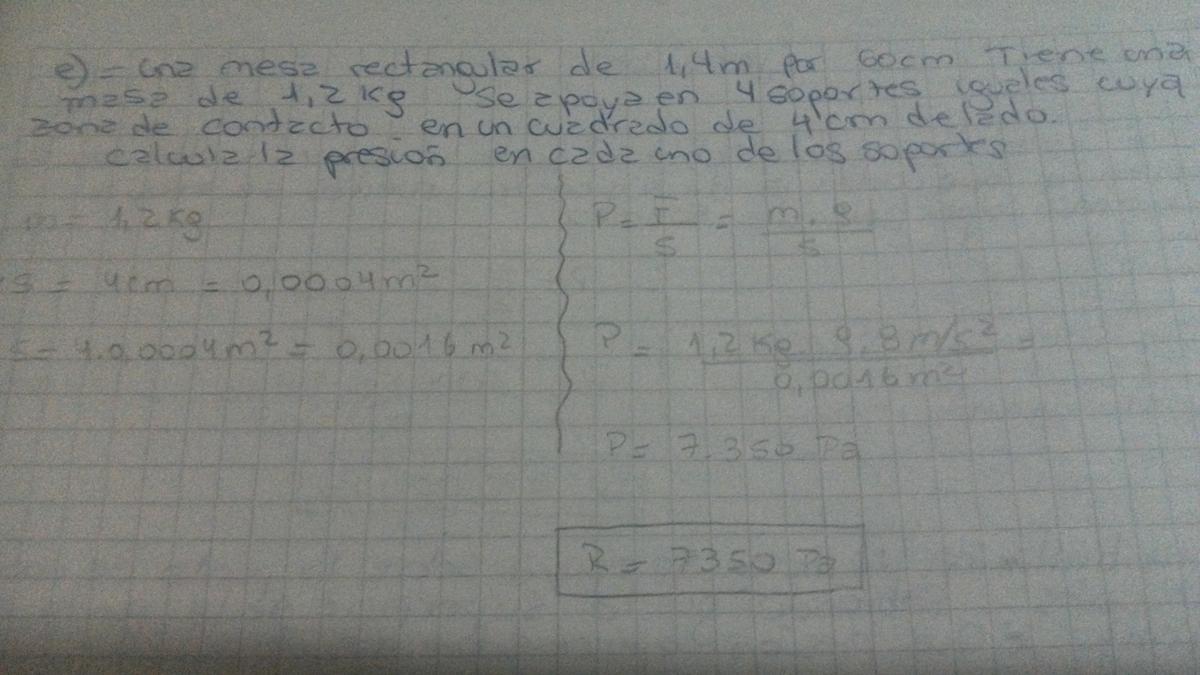 e) = una mesa rectangular de 1,4m por 60cm Tiene una
masa de 1,2 kg se apoya en 4 soportes iguales cuya
zona de contacto en un cuadrado de 4 cm de lado.
calcula la presion en cada uno de los soportes
m = 1,2 kg
P = F/S = m.g/S
S = 4cm = 0,0004 m²
S = 4.0,0004 m² = 0,0016 m²
P = 1,2 Kg 9,8 m/s² / 0,0016 m² =
P = 7.350 Pa
R = 7350 Pa